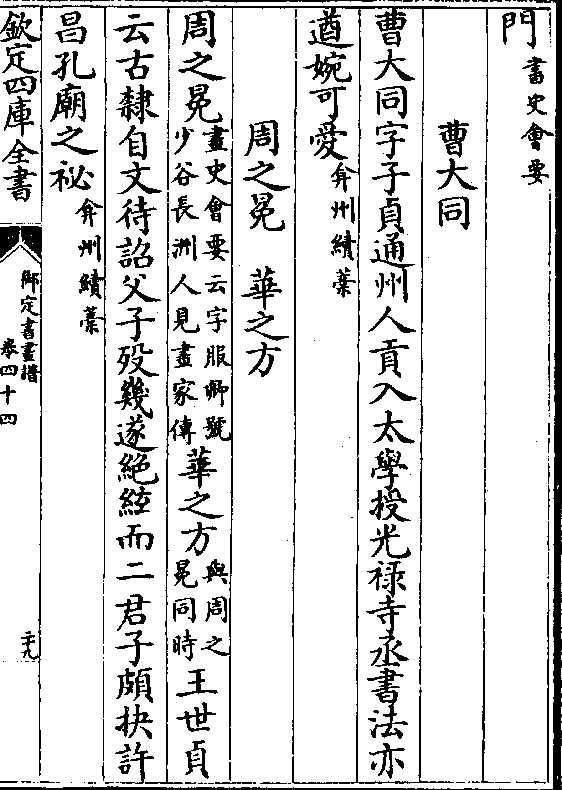 門書史會要
曹大同
曹大同字子貞通州人貢入太學授光禄寺丞書法亦
遒婉可愛弇州續藁
周之冕　華之方
周之冕畫史會要云字服卿號少谷長洲人見畫家傳華之方與周之冕同時王世貞
云古隸自文待詔父子殁幾遂絶絃而二君子頗抉許
昌孔廟之祕弇州續藁
欽定四庫全書
御定書畫譜
卷四十四
二十九